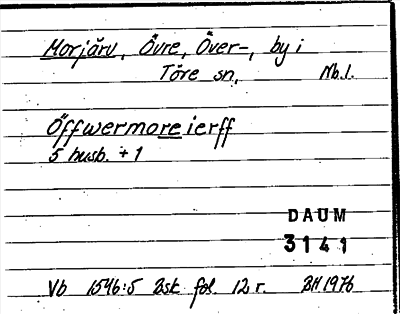 Morjärv, Övre, Över-, by i
Töre sn, Nb.l.
Öffwermoreierff
5 husb. + 1
DAUM
3141
Vb 1546:5 2sk fol. 12 r. BH 1976